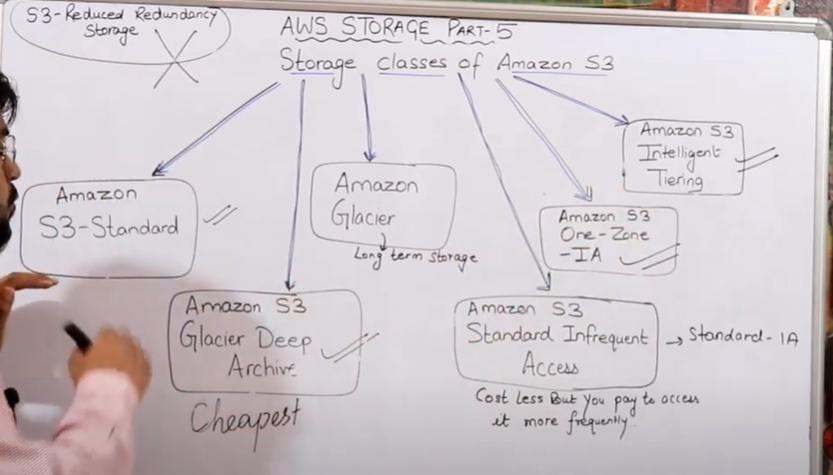 S3-Reduced Redundancy
Storage
AWS STORAGE PART-5
Storage classes of Amazon S3
Amazon S3
Intelligent
Tiering
Amazon
Glacier
Long term storage
Amazon
S3-Standard
Amazon S3
One-Zone
-IA
Amazon S3
Glacier Deep
Archive
Cheapest
Amazon S3
Standard Infrequent
Access
Standard-IA
Cost less But you pay to access
it more frequently.